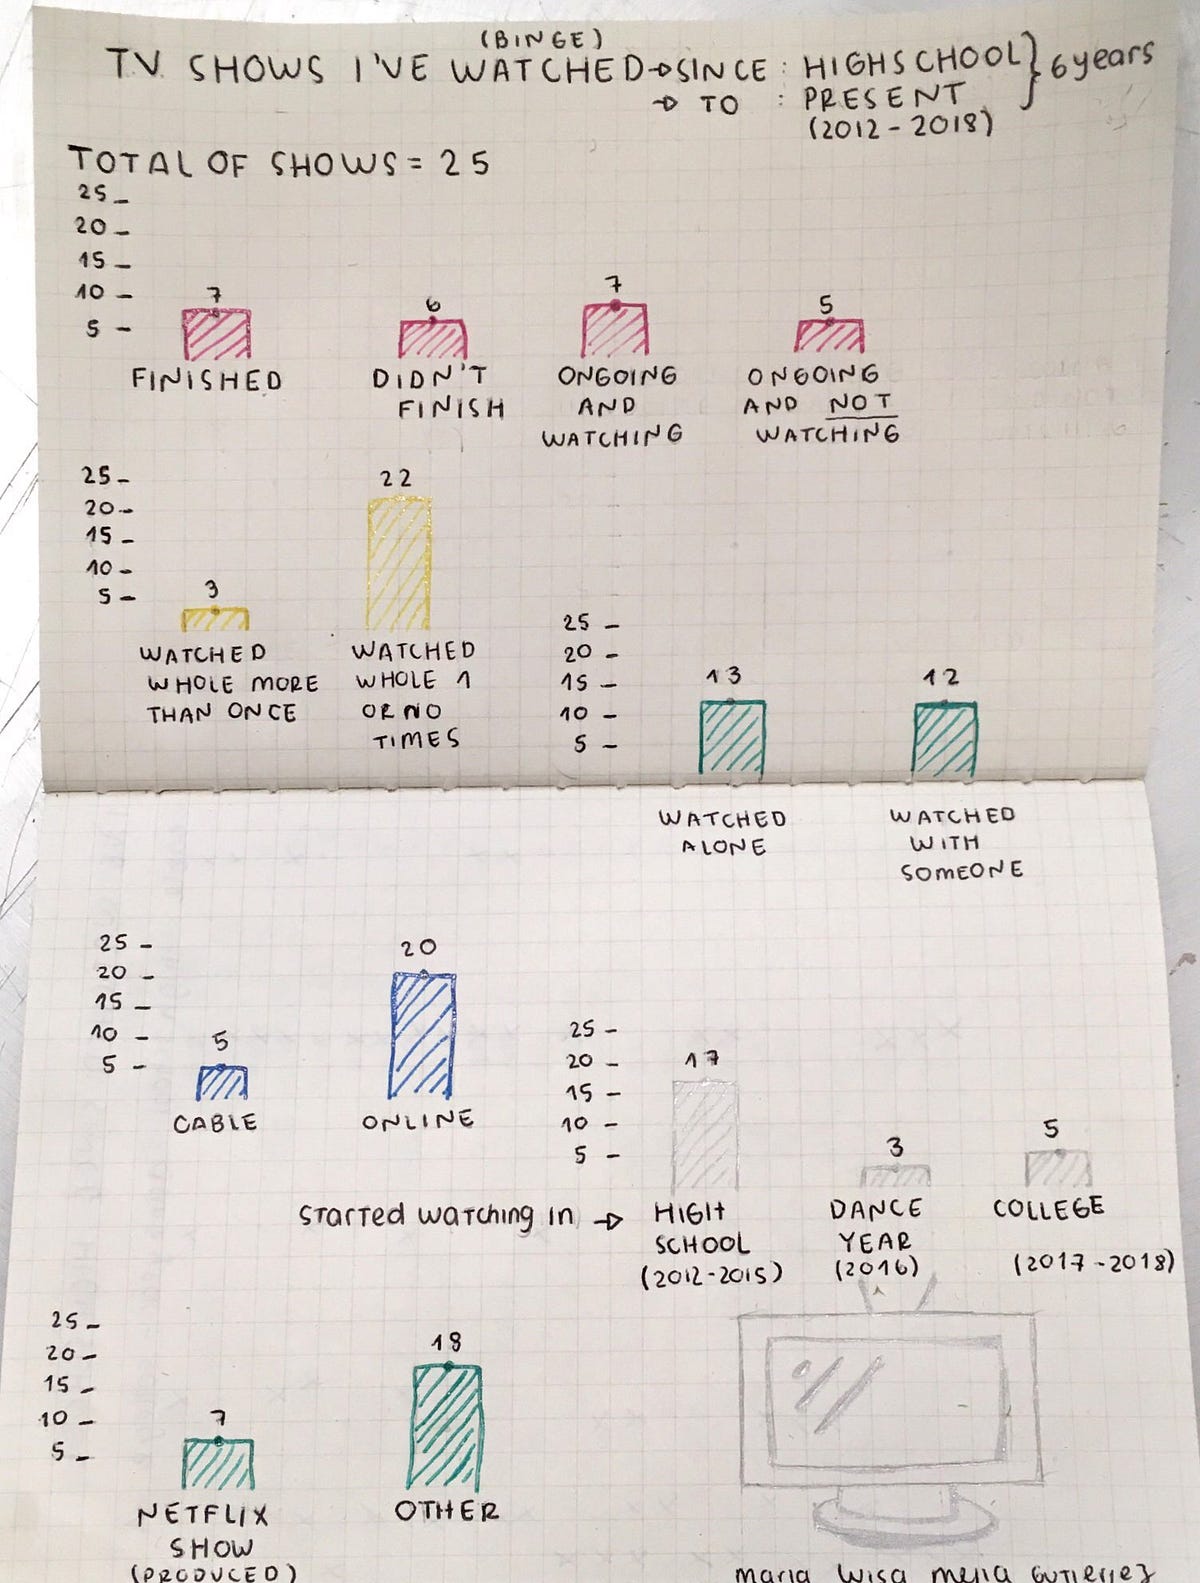 (BINGE)
TV SHOWS I'VE WATCHED → SINCE : HIGHSCHOOL } 6 years
→ TO : PRESENT
(2012 - 2018)
TOTAL OF SHOWS = 25
25 -
20 -
15 -
10 -
5 -
7 6 7 5
FINISHED DIDN'T ONGOING ONGOING
FINISH AND AND NOT
WATCHING WATCHING
25 -
20 -
15 -
10 -
5 -
3 22
WATCHED WATCHED
WHOLE MORE WHOLE 1
THAN ONCE OR NO
TIMES
25 -
20 -
15 -
10 -
5 -
13 12
WATCHED WATCHED
ALONE WITH
SOMEONE
25 -
20 -
15 -
10 -
5 -
5 20
CABLE ONLINE
25 -
20 -
15 -
10 -
5 -
17 3 5
Started watching in → HIGH DANCE COLLEGE
SCHOOL YEAR
(2012-2015) (2016) (2017-2018)
25 -
20 -
15 -
10 -
5 -
7 18
NETFLIX OTHER
SHOW
(PRODUCED)
maria luisa mejia Gutierrez